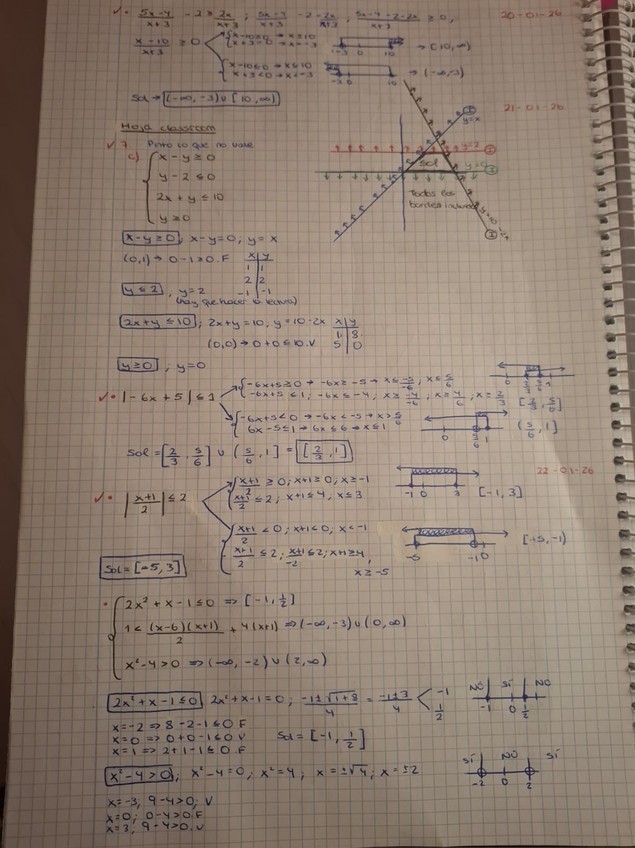 • (5x-4)/(x+3) - 2 ≥ 2x/(x+3) ; (5x-4)/(x+3) - 2 - 2x/(x+3) ; (5x-4-2-2x)/(x+3) ≥ 0, 20-01-26
(x-10)/(x+3) ≥ 0 { x-10≥0 → x≥10
x+3>0 → x>-3 -3 0 10 → [10, ∞)
{ x-10≤0 → x≤10
x+3<0 → x<-3 -3 0 10 → (-∞, -3)
Sol → (-∞, -3) ∪ [10, ∞)
21-01-26
Hoja classroom
✓• 7 Pinto lo que no vale
c) { x - y ≥ 0
y - 2 ≤ 0
2x + y ≤ 10
y ≥ 0
y=x
y=2
Sol
Todos los bordes incluidos
y=10-2x
x-y≥0 ; x-y=0 ; y=x
(0,1) → 0-1≥0 . F
x | y
1 | 1
2 | 2
-1 | -1
y ≤ 2 , y=2
2x+y ≤ 10 ; 2x+y=10 ; y=10-2x
x | y
1 | 8
5 | 0
(0,0) → 0+0≤10 . V
y≥0 ; y=0
✓• |-6x + 5| ≤ 1 { -6x+5≥0 → -6x≥-5 → x≤ -5/-6 ; x≤ 5/6
-6x+5≤1 ; -6x≤-4 ; x≥ -4/-6 ; x≥ 4/6 ; x≥ 2/3 [2/3, 5/6]
{ -6x+5<0 → -6x<-5 → x> 5/6
6x-5≤1 → 6x≤6 → x≤1 0 5/6 1 (5/6, 1]
Sol = [2/3, 5/6] ∪ (5/6, 1] = [2/3, 1]
22-01-26
✓• |(x+1)/2| ≤ 2 { (x+1)/2 ≥ 0 ; x+1≥0 ; x≥-1
(x+1)/2 ≤ 2 ; x+1≤4 , x≤3 -1 0 3 [-1, 3]
{ (x+1)/2 < 0 ; x+1<0 , x<-1
-(x+1)/2 ≤ 2 ; (x+1)/-2 ≤ 2 ; x+1≥-4 , x≥-5 -5 -1 0 [-5, -1)
Sol = [-5, 3]
• { 2x² + x - 1 ≤ 0 ⇒ [-1, 1/2]
1 < (x-6)(x+1)/2 + 4(x+1) ⇒ (-∞, -3) ∪ (0, ∞)
x² - 4 > 0 ⇒ (-∞, -2) ∪ (2, ∞)
2x²+x-1≤0 , 2x²+x-1=0 ; (-1±√(1+8))/4 = (-1±3)/4 < -1
1/2
NO SÍ NO
-1 0 1/2
x=-2 ⇒ 8-2-1≤0 F
x=0 ⇒ 0+0-1≤0 V Sol = [-1, 1/2]
x=1 ⇒ 2+1-1≤0 . F
x²-4>0 ; x²-4=0 ; x²=4 ; x=±√4 ; x=±2
SÍ NO SÍ
-2 0 2
x=-3, 9-4>0, V
x=0; 0-4>0.F
x=3, 9-4>0.V